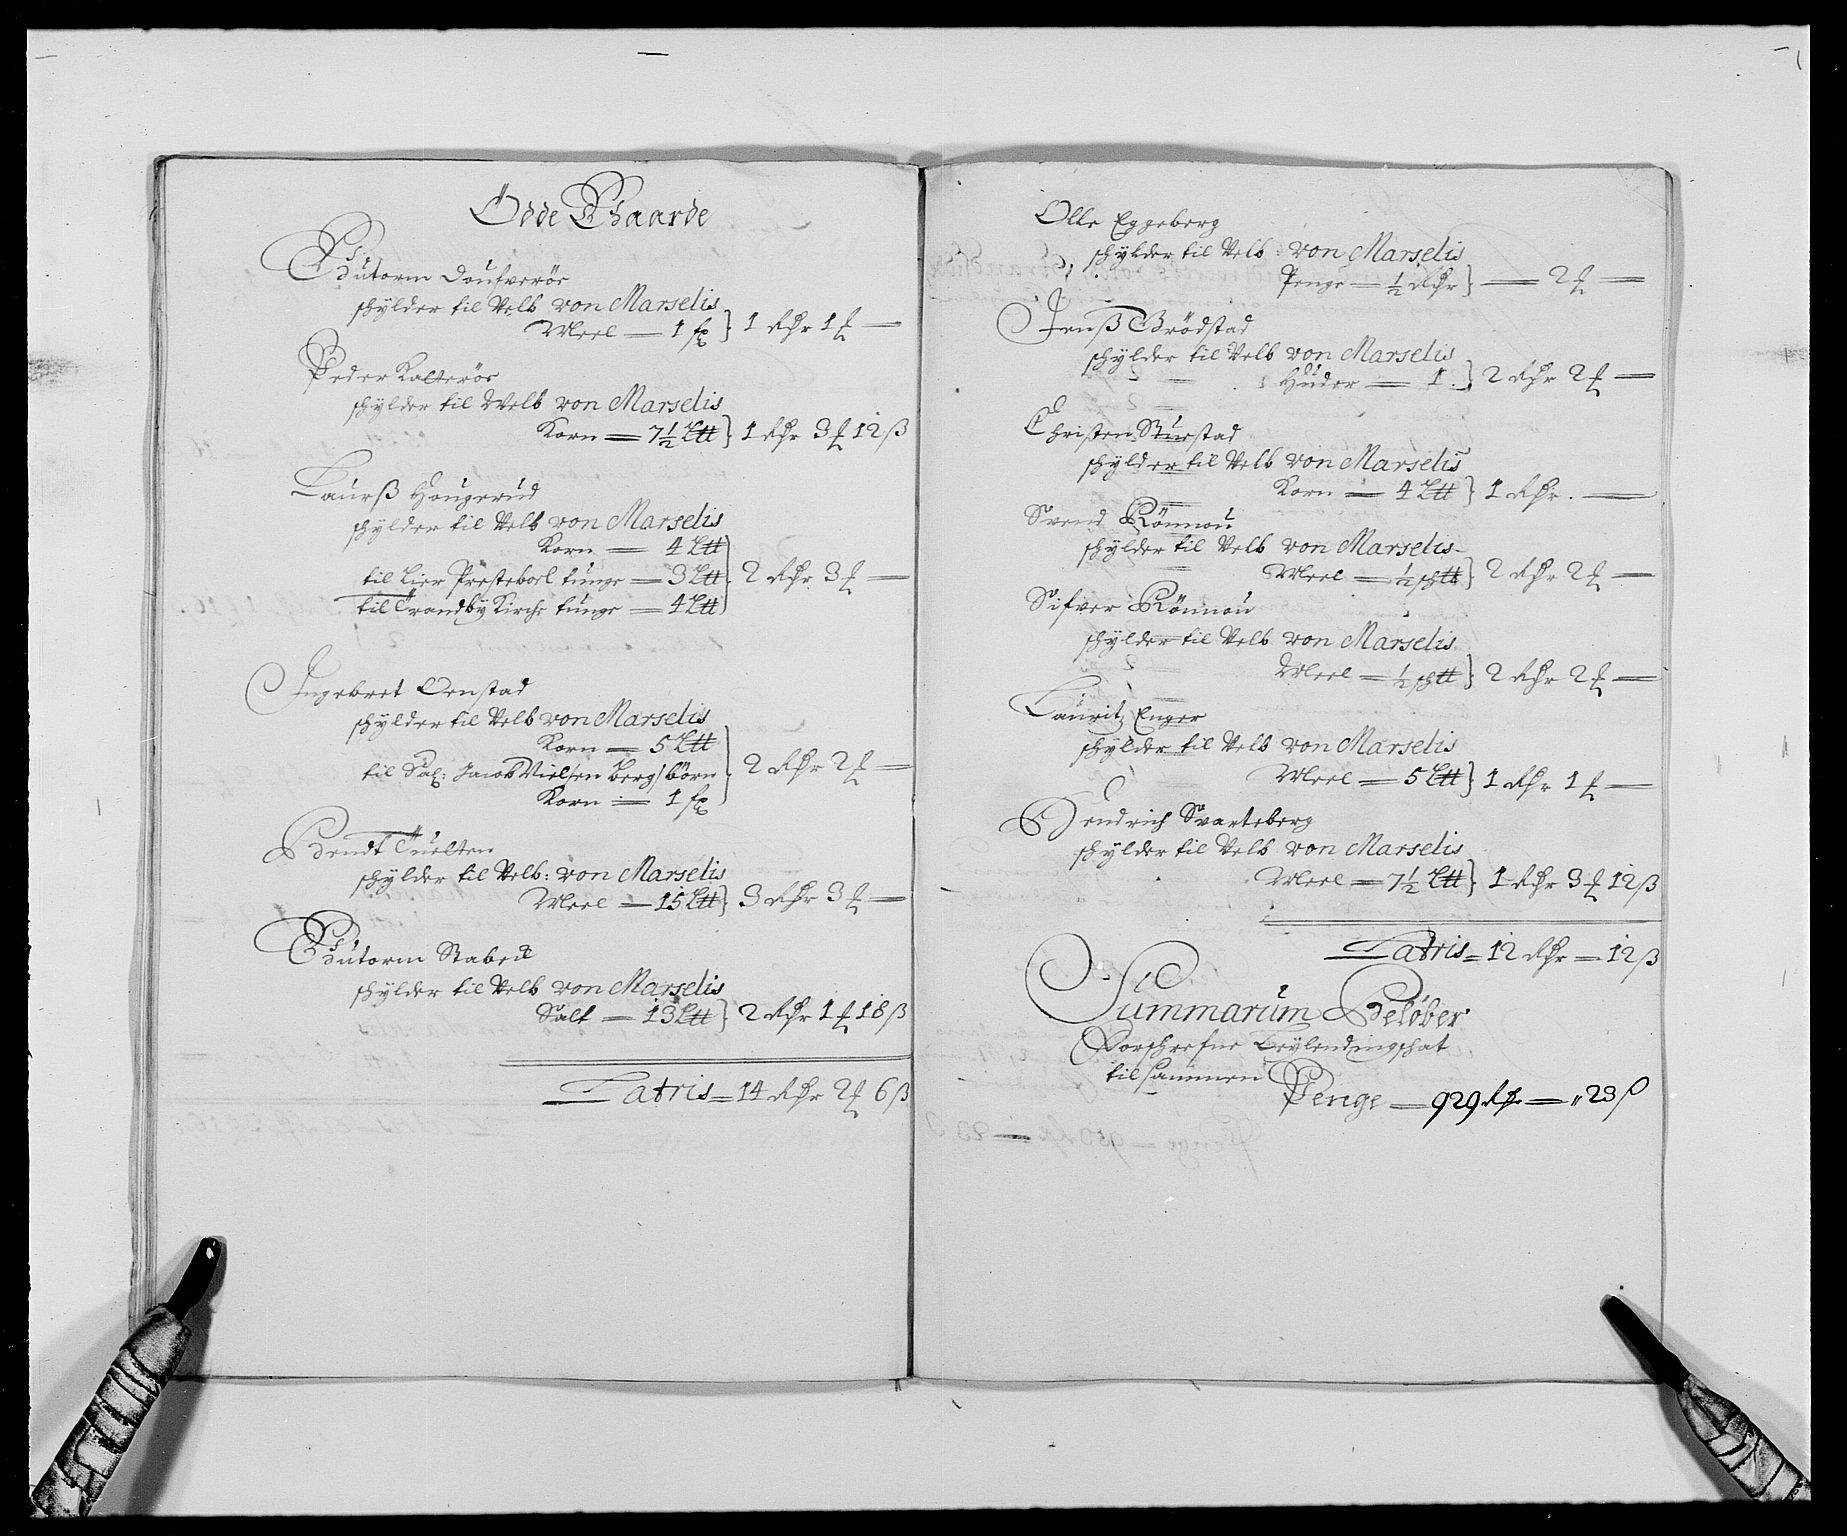 Ödde Ghaarde
Gutorm Doufverös
schÿlder til Velb von Marselis
Meel — 1 sk } 1 Rdr 1 ƒ —
Peder Kalterös
schÿlder til Welb von Marselis
Korn — 7½ Ltt } 1 Rdr 3 ƒ 12 ß
Laurß Hougerud
schÿlder til Velb von Marselis
Korn — 4 Ltt
til Lier Presteboel tunge — 3 Ltt } 2 Rdr 3 ƒ —
til Trandby Kirche tunge — 4 Ltt
Ingebret Ornstad
schÿlder til Velb von Marselis
Korn — 5 Ltt
til Sal: Jacob Nielsen Bergs börn } 2 Rdr 2 ƒ —
Korn — 1 sk
Bendt Tuelten
schÿlder til Velb: von Marselis
Meel — 15 Ltt } 3 Rdr 3 ƒ —
Gutorm Stabek
schÿlder til Velb von Marselis
Salt — 13 Ltt } 2 Rdr 1 ƒ 18 ß
Latris — 14 Rdr 2 ƒ 6 ß
Olle Eggeberg
schÿlder til Velb: von Marselis
Penge — ½ Rdr } — 2 ƒ —
Jenß Brödstad
schÿlder til Velb von Marselis
Huder — 1 } 2 Rdr 2 ƒ —
Christen Stustad
schÿlder til Velb von Marselis
Korn — 4 Ltt } 1 Rdr. —
Svend Rönnou
schÿlder til Velb von Marselis
Meel — ½ schtt } 2 Rdr 2 ƒ —
Sifver Rönnou
schÿlder til Velb von Marselis
Meel — ½ schtt } 2 Rdr 2 ƒ —
Lauritz Enger
schÿlder til Velb von Marselis
Meel — 5 Ltt } 1 Rdr 1 ƒ —
Hendrich Svarteberg
schÿlder til Velb von Marselis
Meel — 7½ Ltt } 1 Rdr 3 ƒ 12 ß
Latris — 12 Rdr — 12 ß
Summarum Beløber
Forschrefne Leÿlendingschat
tilsammen
Penge — 929 Rdr — „ 23 ß